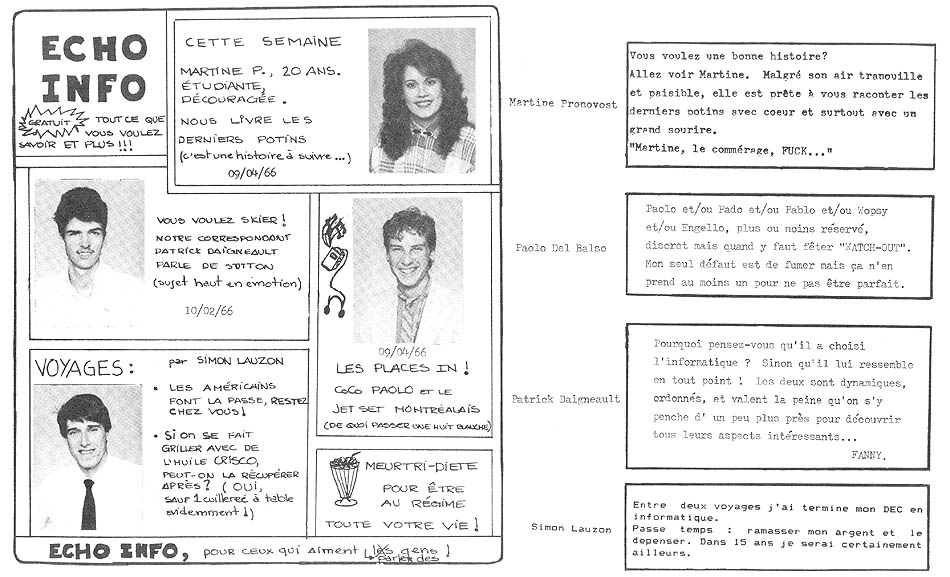 ECHO
INFO
GRATUIT
TOUT CE QUE
VOUS VOULEZ
SAVOIR ET PLUS !!!
CETTE SEMAINE
MARTINE P., 20 ANS.
ÉTUDIANTE,
DÉCOURAGÉE.
NOUS LIVRE LES
DERNIERS POTINS
(c'est une histoire à suivre...)
09/04/66
VOUS VOULEZ SKIER !
NOTRE CORRESPONDANT
PATRICK DAIGNEAULT
PARLE DE SUTTON
(sujet haut en émotion)
10/02/66
09/04/66
LES PLACES IN !
COCO PAOLO ET LE
JET SET MONTRÉALAIS
(DE QUOI PASSER UNE NUIT BLANCHE)
VOYAGES :
par SIMON LAUZON
• LES AMÉRICAINS
FONT LA PASSE, RESTEZ
CHEZ VOUS !
• SI ON SE FAIT
GRILLER AVEC DE
L'HUILE CRISCO,
PEUT-ON LA RÉCUPÉRER
APRÈS ? ( OUI,
SAUF 1 cuillereé à table
évidemment !)
MEURTRI-DIETE
POUR ÊTRE
AU RÉGIME
TOUTE VOTRE VIE !
ECHO INFO, POUR CEUX QUI AIMENT les gens !
parler des
Martine Pronovost
Vous voulez une bonne histoire?
Allez voir Martine. Malgré son air tranquille
et paisible, elle est prête à vous raconter les
derniers potins avec coeur et surtout avec un
grand sourire.
"Martine, le commérage, FUCK..."
Paolo Del Balso
Paolo et/ou Fado et/ou Pablo et/ou Wopsy
et/ou Engello, plus ou moins réservé,
discret mais quand y faut fêter "WATCH-OUT".
Mon seul défaut est de fumer mais ça n'en
prend au moins un pour ne pas être parfait.
Patrick Daigneault
Pourquoi pensez-vous qu'il a choisi
l'informatique ? Sinon qu'il lui ressemble
en tout point ! Les deux sont dynamiques,
ordonnés, et valent la peine qu'on s'y
penche d' un peu plus près pour découvrir
tous leurs aspects intéressants...
FANNY.
Simon Lauzon
Entre deux voyages j'ai termine mon DEC en
informatique.
Passe temps : ramasser mon argent et le
depenser. Dans 15 ans je serai certainement
ailleurs.